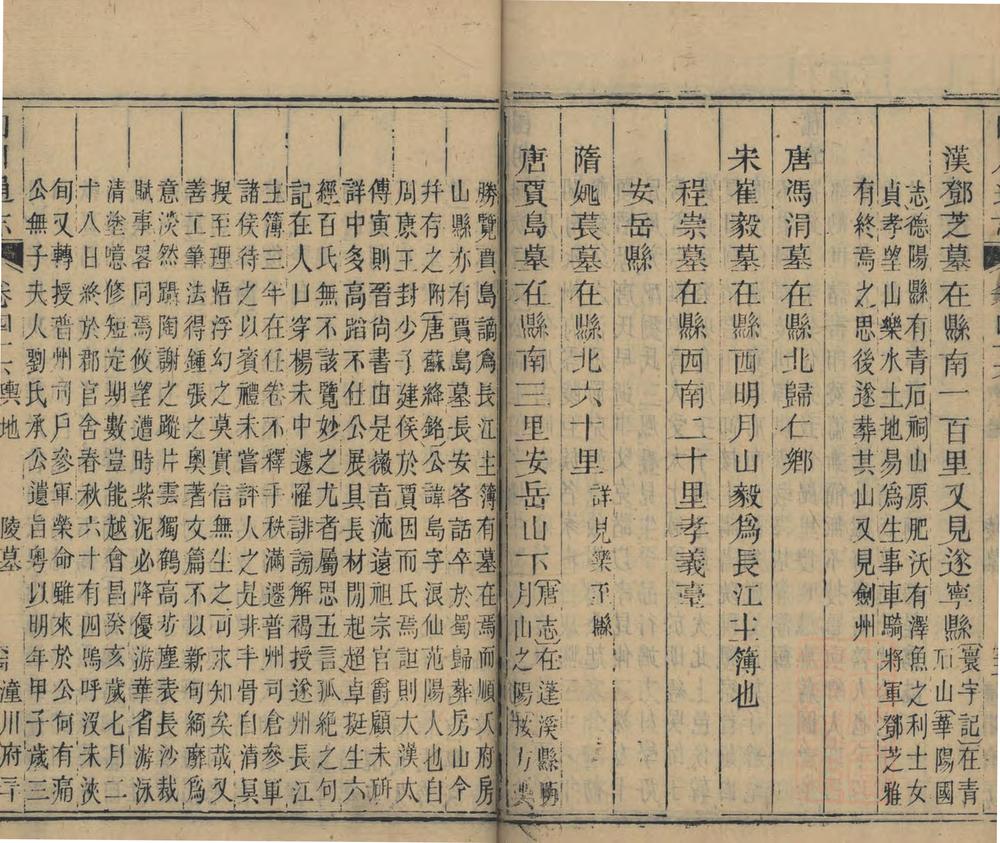 漢鄧芝墓在縣南一百里又見遂寧縣寰宇記在青石山華陽國
志德陽縣有青石祠山原肥沃有澤魚之利士女
貞孝望山樂水土地易為生事車騎將軍鄧芝雅
有終焉之思後遂葬其山又見劍州
唐馮涓墓在縣北歸仁鄉
宋崔毅墓在縣西明月山毅為長江主簿也
程崇墓在縣西南二十里孝義臺
安岳縣
隋姚萇墓在縣北六十里詳見樂至縣
唐賈島墓在縣南三里安岳山下唐志在蓬溪縣明月山之陽按方輿
勝覽賈島謫為長江主簿有墓在焉而順天府房
山縣亦有賈島墓長安客話卒於蜀歸葬房山今
并存之附唐蘇絳銘公諱島字浪仙范陽人也自
周康王封少子建侯於賈因而氏焉誼則大漢大
傅寅則晉尚書由是徽音流遠祖宗官爵顧未研
詳中多高蹈不仕公展其長材間起超卓挺生六
經百氏無不該覽妙之尤者屬思五言孤絕之句
記在人口穿楊未中遽罹誹謗解褐授遂州長江
主簿三年在任卷不釋手秩滿遷普州司倉參軍
諸侯待之以賓禮未嘗評人之是非手骨自清冥
搜至理悟浮幻之莫實信無生之可求知矣哉又
善工筆法得鍾張之奧著文篇不以新句綺靡為
意淡然躡陶謝之蹤片雲獨鶴高步塵表長沙裁
賦事畧同焉攸望遭時紫泥必降優游華省游泳
清塗噫修短定期數豈能越會昌癸亥歲七月二
十八日終於郡官舍春秋六十有四嗚呼沒未浹
旬又轉授普州司戶參軍榮命雖來於公何有痛
公無子夫人劉氏承公遺旨粵以明年甲子歲三
輿地 陵墓 潼川府